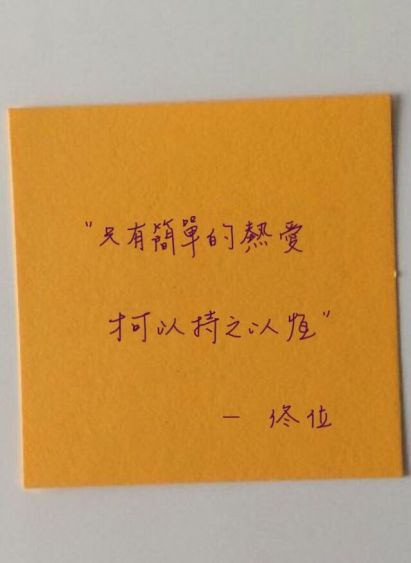 "只有簡單的熱愛
才可以持之以恆"
— 佟位